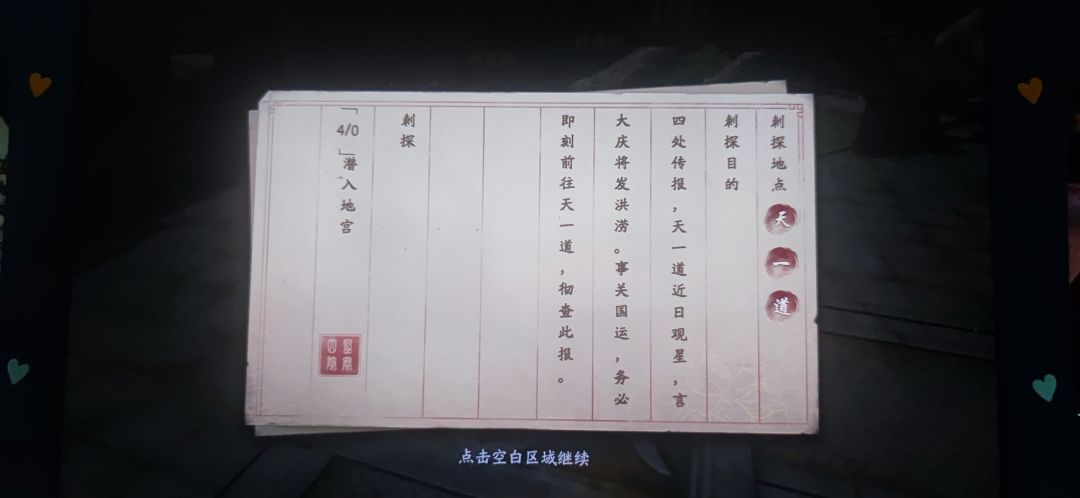 刺探地点 天一道
刺探目的
四处传报，天一道近日观星，言
大庆将发洪涝。事关国运，务必
即刻前往天一道，彻查此报。
刺探
「4/0」潜入地宫
点击空白区域继续